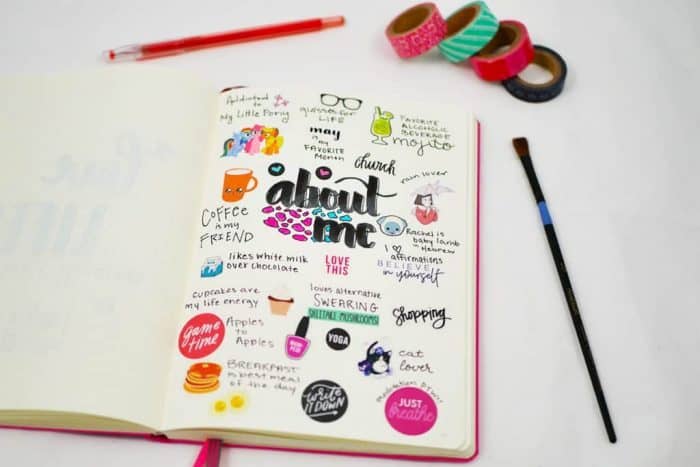 Addicted to
My Little Pony
glasses for
LIFE
may
is my
FAVORITE
Month
FAVORITE
ALCOHOLIC
BEVERAGE
mojito
church
rain lover
about
me
COFFEE
is my
FRIEND
Rachel is
baby lamb
in Hebrew
likes white milk
over chocolate
LOVE
THIS
I ♡
affirmations
BELIEVE
in yourself
cupcakes are
my life energy
loves alternative
SWEARING
SHIITAKE MUSHROOMS!
shopping
Game
time
Apples
to
Apples
YOGA
cat
lover
BREAKFAST
is best meal
of the day
write
IT DOWN
JUST
breathe